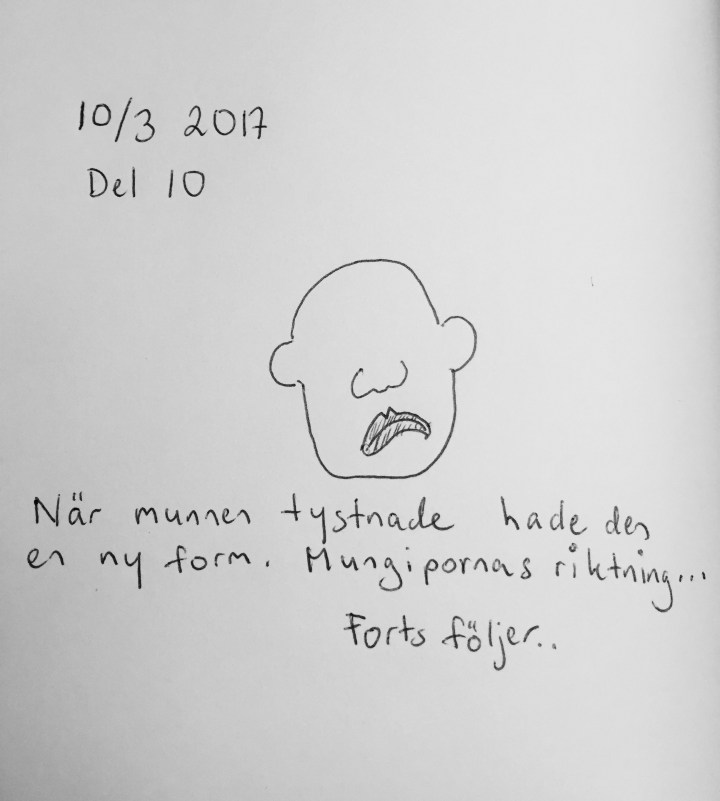 10/3 2017
Del 10
När munnen tystnade hade den
en ny form. Mungipornas riktning...
Forts följer..